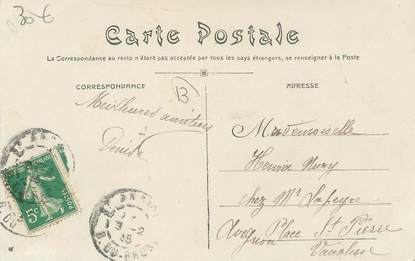 30€
Carte Postale
La Correspondance au recto n'étant pas acceptée par tous les pays étrangers, se renseigner à la Poste
CORRESPONDANCE
ADRESSE
13
Meilleures amitiés
Mademoiselle
chez Mr Lafeyre
Place St Pierre
Avignon
Vaucluse
5c